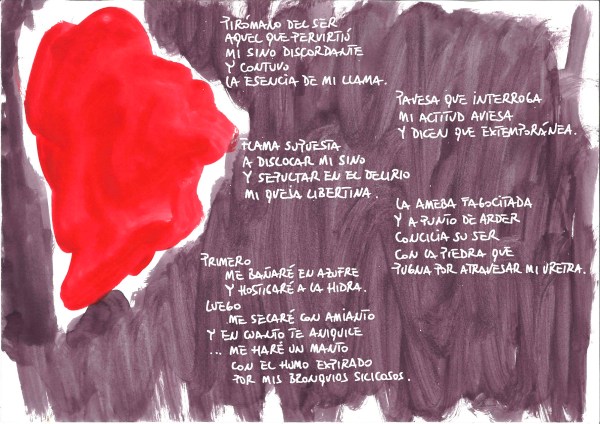 PIRÓMANO DEL SER
AQUEL QUE PERVIRTIÓ
MI SINO DISCORDANTE
Y CONTUVO
LA ESENCIA DE MI LLAMA.
PAVESA QUE INTERROGA
MI ACTITUD AVIESA
Y DICEN QUE EXTEMPORÁNEA.
FLAMA SUPUESTA
A DISLOCAR MI SINO
Y SEPULTAR EN EL DELIRIO
MI QUEJA LIBERTINA.
LA AMEBA FAGOCITADA
Y A PUNTO DE ARDER
CONCILIA SU SER
CON LA PIEDRA QUE
PUGNA POR ATRAVESAR MI URETRA.
PRIMERO
ME BAÑARÉ EN AZUFRE
Y HOSTIGARÉ A LA HIDRA.
LUEGO
ME SECARÉ CON AMIANTO
Y EN CUANTO TE ANIQUILE
... ME HARÉ UN MANTO
CON EL HUMO EXPIRADO
POR MIS BRONQUIOS SILICOSOS.